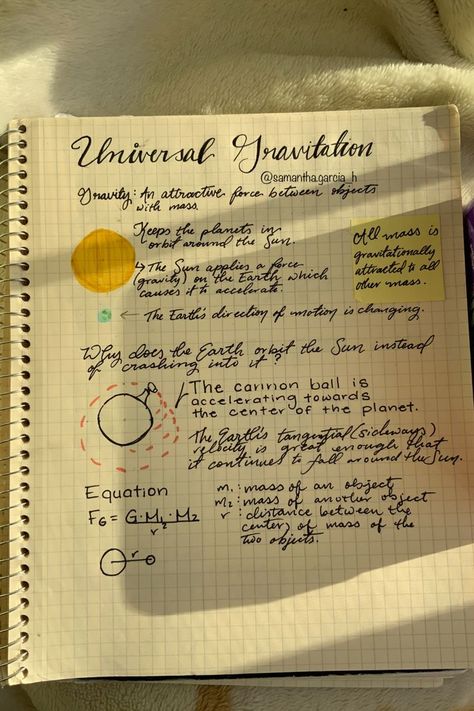 Universal Gravitation
@samantha.garcia_h
Gravity: An attractive force between objects
with mass.
Keeps the planets in
orbit around the Sun.
↳ The Sun applies a force
(gravity) on the Earth which
causes it to accelerate.
← The Earth's direction of motion is changing.
All mass is
gravitationally
attracted to all
other mass.
Why does the Earth orbit the Sun instead
of crashing into it?
The cannon ball is
accelerating towards
the center of the planet.
The Earth's tangential (sideways)
velocity is great enough that
it continues to fall around the Sun.
Equation
FG = G·M1·M2
r²
r
m1: mass of an object
m2: mass of another object
r: distance between the
(center) of mass of the
two objects.